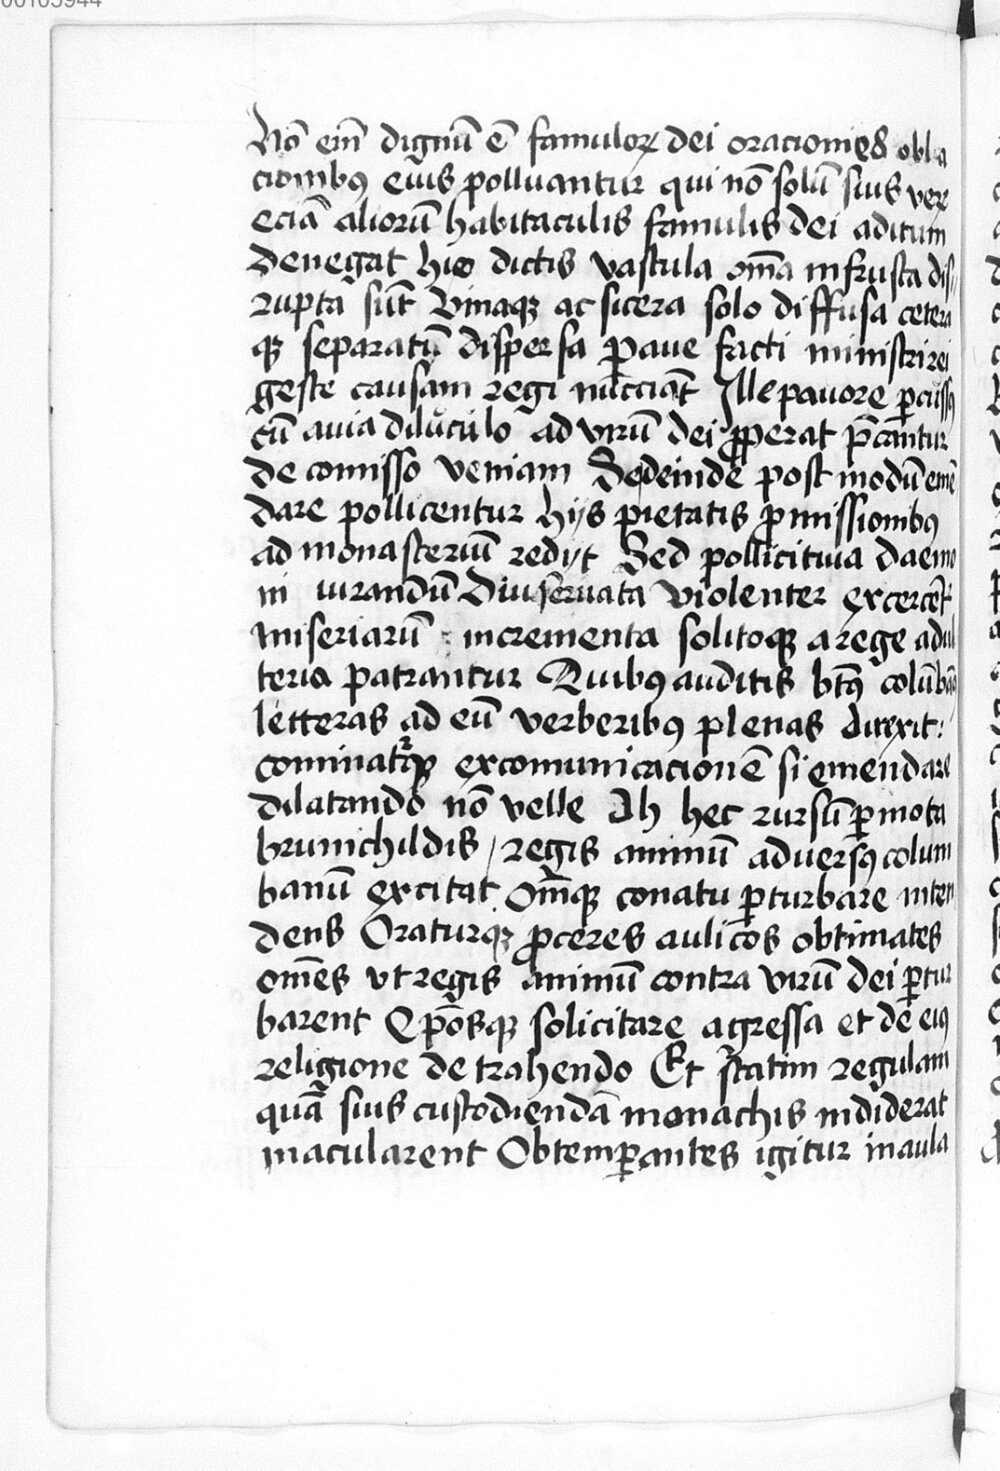 00105944
Nō em̄ dignū ē famuloꝝ dei oracioneſ obla
cionibꝯ eius polluantur qui nō solū suis veꝝ
eciā aliorū habitaculis famulis dei aditum
denegat hijs dictis vascula om̄a in frusta dis
rupta sūt vinaqꝫ ac sicera solo diffusa cetera
qꝫ separatī dispersa pauefacti ministri rei
geste causam regi nūcciāt Ille pavore ꝑcussꝯ
cū auia diluculo ad virū dei ꝓperat p̄cantur
de comisso veniam Se deinde post modū emē
dare pollicentur hijs pietatis ꝓmissionibus
ad monasteriū redijt Sed polliciti uia dae
ni iurandū diu seruata violenter excercēt̄
miseriarū incrementa solitoqꝫ a rege adul
teria patrantur Quibꝯ auditis btūs colūbanꝯ
letteras ad eū verberibꝯ plenas direxit:
cominatʳqꝫ excomunicacionē si emendare
dilatando nō velle Ah hec rursū ꝑmota
brunichildis / regis animū aduersꝯ colum
banū excitat om̄iqꝫ conatu ꝑturbare inten
dens Oraturqꝫ ꝓceres aulicos obtimates
om̄es vt regis animū contra virū dei ꝑtur
barent Ep̄osqꝫ solicitare agressa et de eiꝯ
religione detrahendo Et statim regulam
quā suis custodiendā monachis indiderat
macularent Obtemꝑantes igitur in aula